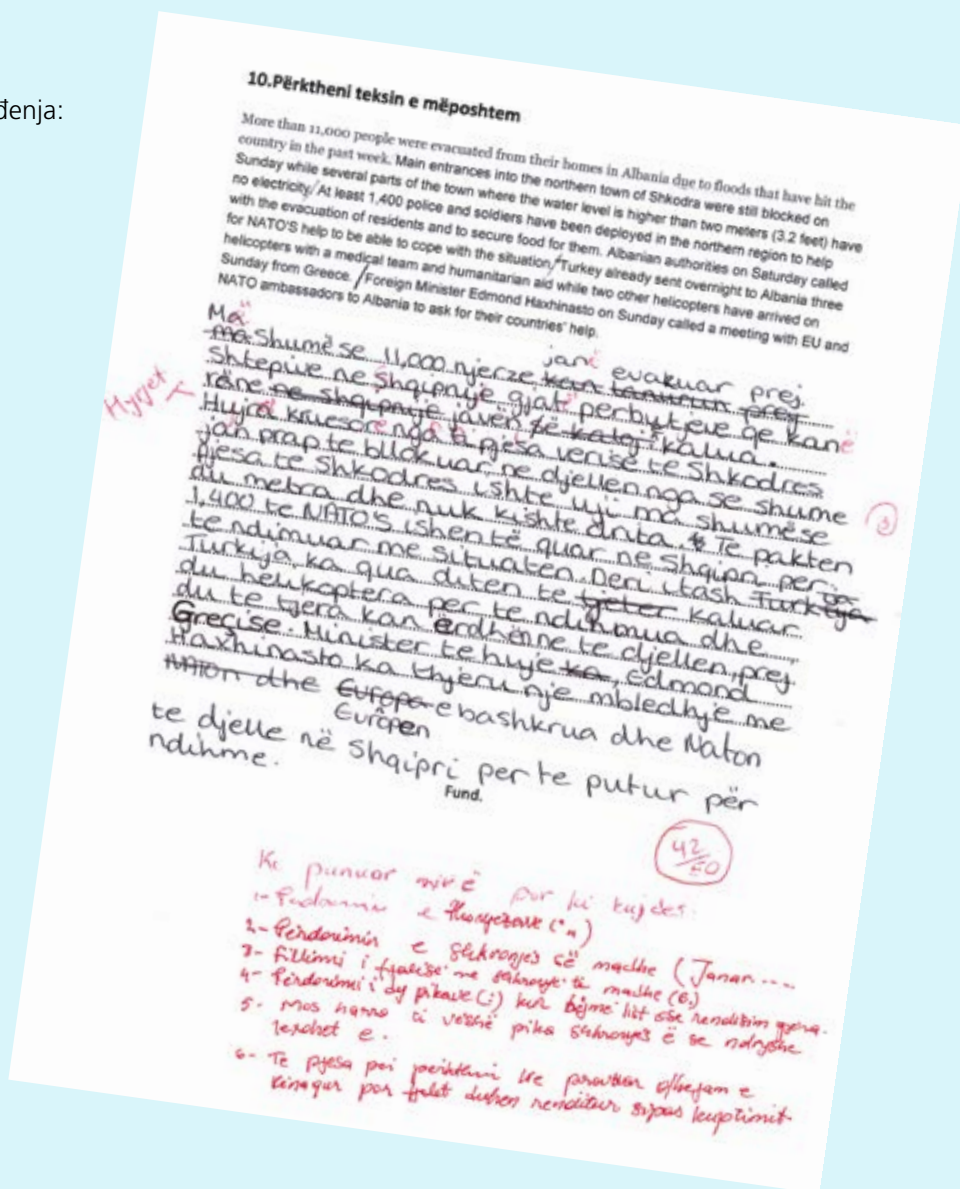 đenja:
10.Përktheni teksin e mëposhtem
More than 11,000 people were evacuated from their homes in Albania due to floods that have hit the
country in the past week. Main entrances into the northern town of Shkodra were still blocked on
Sunday while several parts of the town where the water level is higher than two meters (3.2 feet) have
no electricity. / At least 1,400 police and soldiers have been deployed in the northern region to help
with the evacuation of residents and to secure food for them. Albanian authorities on Saturday called
for NATO'S help to be able to cope with the situation. / Turkey already sent overnight to Albania three
helicopters with a medical team and humanitarian aid while two other helicopters have arrived on
Sunday from Greece. / Foreign Minister Edmond Haxhinasto on Sunday called a meeting with EU and
NATO ambassadors to Albania to ask for their countries' help.
Më
ma shumë se 11,000 njerze janë evakuar prej
shtepive ne Shqipnije gjatë perbytjeve qe kanë
rëne ne shqipnije javën kalua.
Hyrjet
Hujra kruesore nga pjesa verise te Shkodres
jan prap te bllokuar ne djellen nga se shume
pjesa te Shkodres ishte uji ma shumë se
du metra dhe nuk kishte drita. Te pakten
1,400 te NATO'S ishen të quar ne Shqipri per
te ndimuar me situaten. Deri i tash
Turkija, ka qua diten te tjeter kaluar
du helikoptera per te ndihmua dhe
du te tjera kan ërdhën ne te djellen, prej
Greqise. Minister te huje ka, Edmond
Haxhinasto ka thjeru nje mbledhje me
dhe Europa e bashkrua dhe Naton
Europen
te djelle në Shqipri per te putur për
ndihme.
Fund.
42/50
Ke punuar mirë por ki kujdes.
2- Përdorimin e shkronjës së madhe (Janar....
3- Fillimi i fjalisë me shkronjë të madhe (6.)
4- Përdorimi i dy pikave (:) kur bëjmë list ose renditim gjëra.
5- Mos harro ti veshë pika shkronjës ë se ndryshe
lexohet e.
6- Te pjesa
por fjalët duhen renditur sipas kuptimit